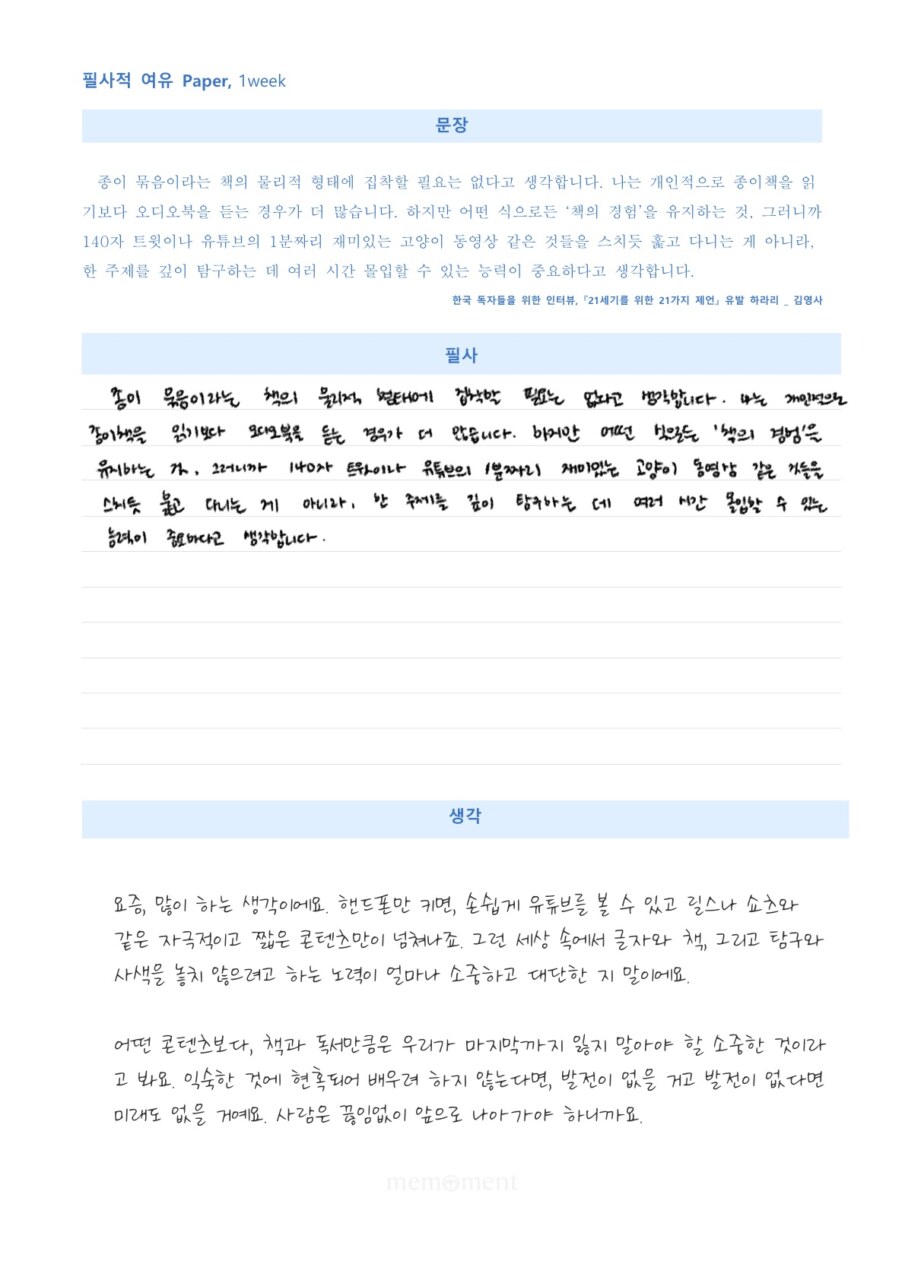 필사적 여유 Paper, 1week
문장
종이 묶음이라는 책의 물리적 형태에 집착할 필요는 없다고 생각합니다. 나는 개인적으로 종이책을 읽
기보다 오디오북을 듣는 경우가 더 많습니다. 하지만 어떤 식으로든 ‘책의 경험’을 유지하는 것, 그러니까
140자 트윗이나 유튜브의 1분짜리 재미있는 고양이 동영상 같은 것들을 스치듯 훑고 다니는 게 아니라,
한 주제를 깊이 탐구하는 데 여러 시간 몰입할 수 있는 능력이 중요하다고 생각합니다.
한국 독자들을 위한 인터뷰, 『21세기를 위한 21가지 제언』 유발 하라리 _ 김영사
필사
종이 묶음이라는 책의 물리적 형태에 집착할 필요는 없다고 생각합니다. 나는 개인적으로
종이책을 읽기보다 오디오북을 듣는 경우가 더 많습니다. 하지만 어떤 식으로든 '책의 경험'을
유지하는 것, 그러니까 140자 트윗이나 유튜브의 1분짜리 재미있는 고양이 동영상 같은 것들을
스치듯 훑고 다니는 게 아니라, 한 주제를 깊이 탐구하는 데 여러 시간 몰입할 수 있는
능력이 중요하다고 생각합니다.
생각
요즘, 많이 하는 생각이에요. 핸드폰만 키면, 손쉽게 유튜브를 볼 수 있고 릴스나 쇼츠와
같은 자극적이고 짧은 콘텐츠만이 넘쳐나죠. 그런 세상 속에서 글자와 책, 그리고 탐구와
사색을 놓치 않으려고 하는 노력이 얼마나 소중하고 대단한 지 말이에요.
어떤 콘텐츠보다, 책과 독서만큼은 우리가 마지막까지 잃지 말아야 할 소중한 것이라
고 봐요. 익숙한 것에 현혹되어 배우려 하지 않는다면, 발전이 없을 거고 발전이 없다면
미래도 없을 거예요. 사람은 끊임없이 앞으로 나아가야 하니까요.
memoment